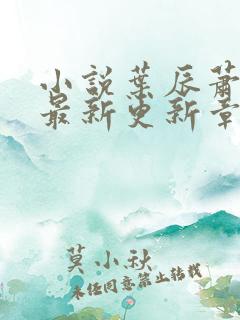 小說葉辰蕭
最新更新章
莫小秋
未經同意禁止轉載